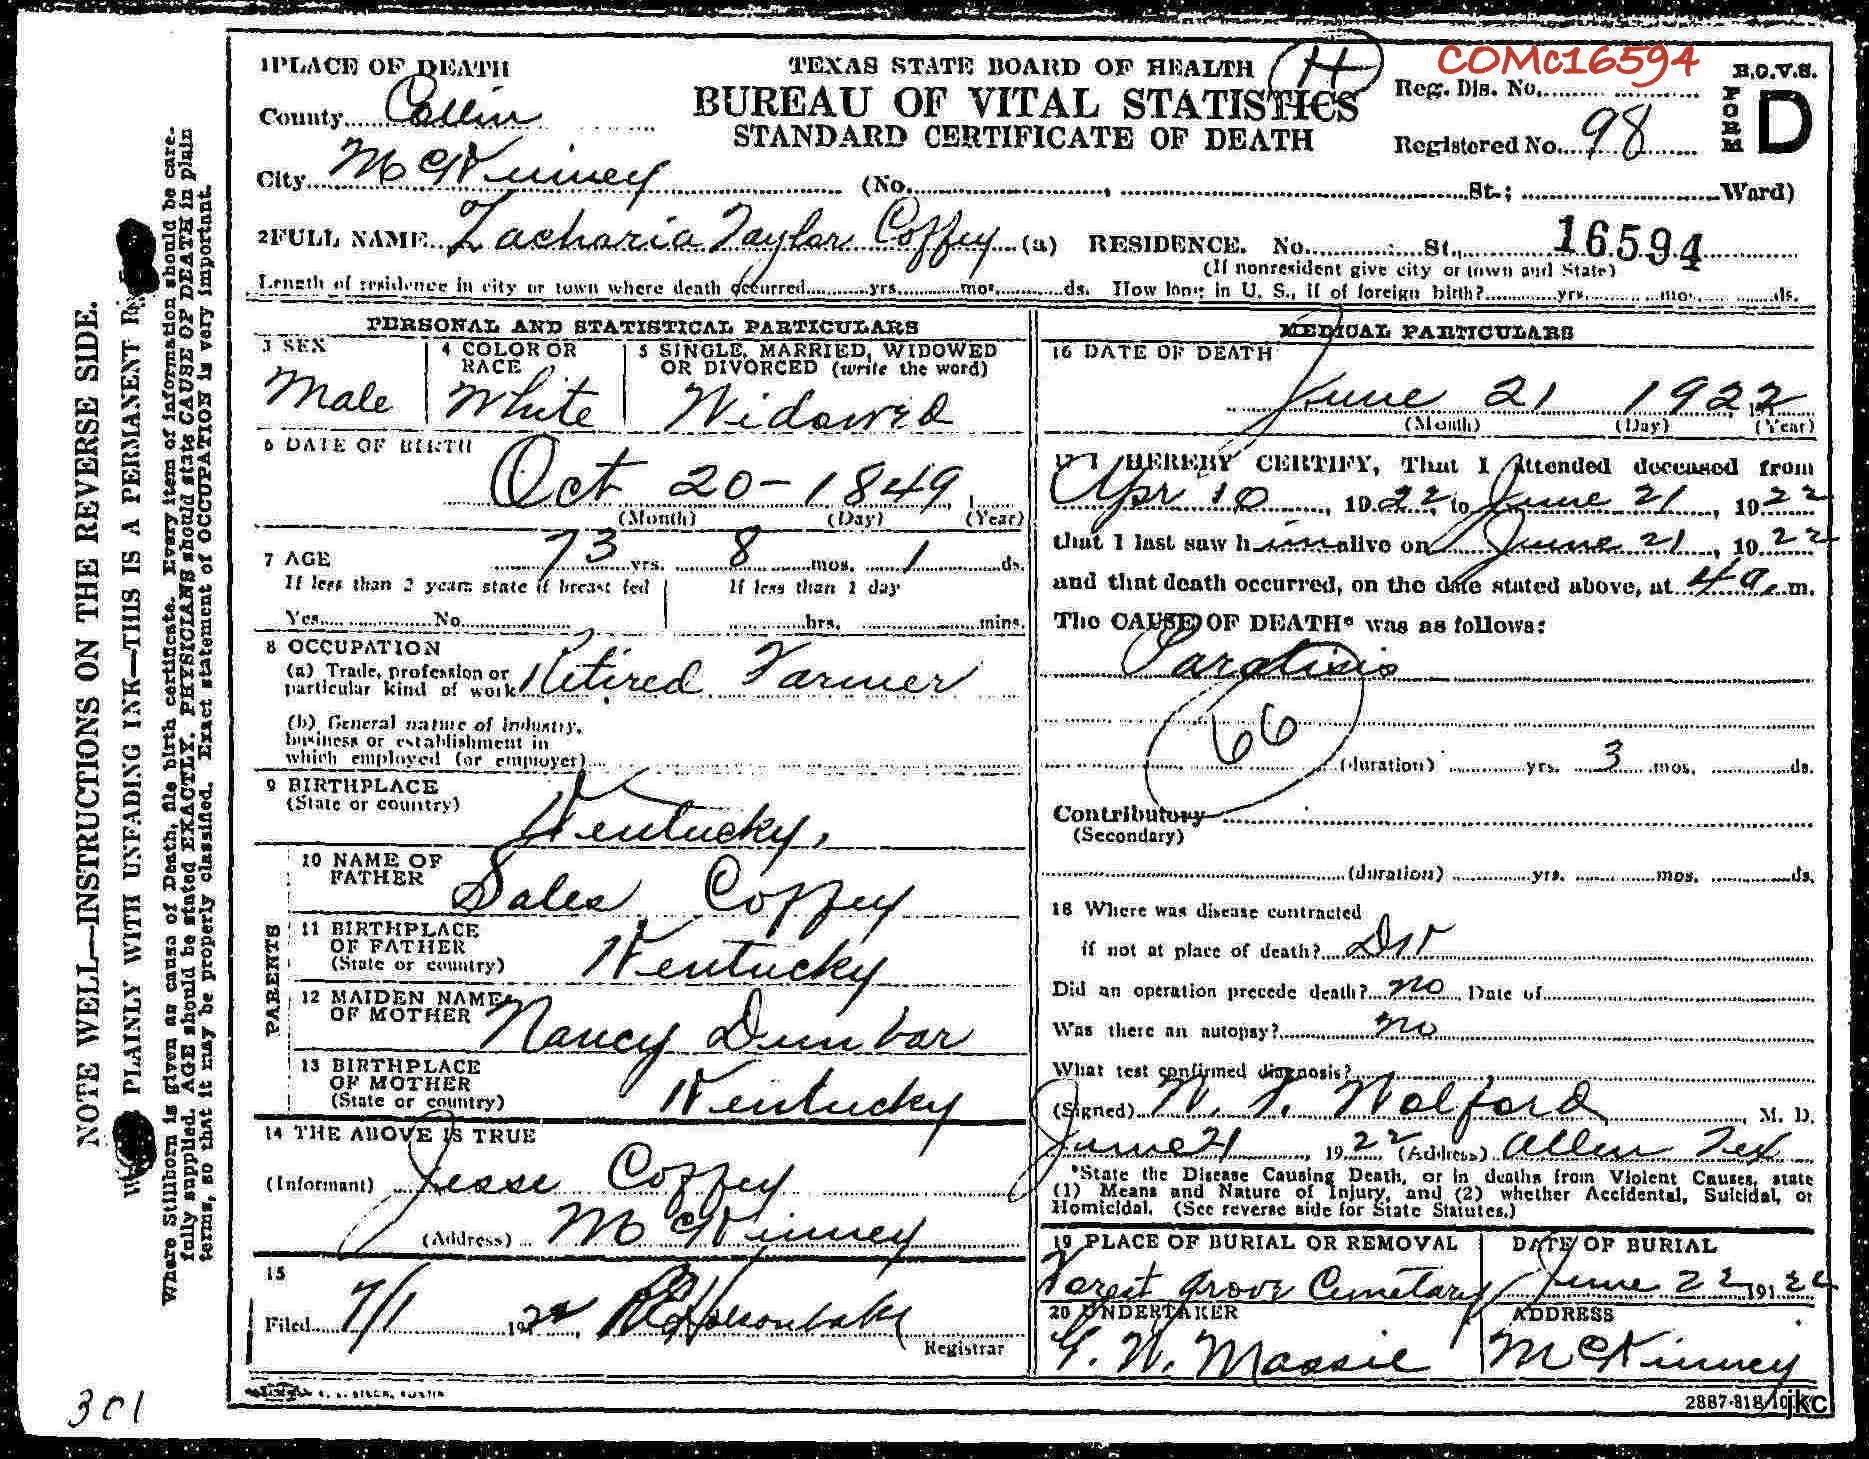 COMc16594
1 PLACE OF DEATH
TEXAS STATE BOARD OF HEALTH
H
Reg. Dis. No.
B.O.V.S.
County Collin
BUREAU OF VITAL STATISTICS
STANDARD CERTIFICATE OF DEATH
Registered No. 98
FORM D
City McKinney (No. St.; Ward)
2 FULL NAME Zacharia Taylor Coffey (a) RESIDENCE. No. St. 16594
(If nonresident give city or town and State)
Length of residence in city or town where death occurred yrs. mos. ds. How long in U. S., if of foreign birth? yrs. mos. ds.
PERSONAL AND STATISTICAL PARTICULARS
3 SEX
Male
4 COLOR OR RACE
White
5 SINGLE, MARRIED, WIDOWED
OR DIVORCED (write the word)
Widowed
6 DATE OF BIRTH
Oct 20-1849, 1
(Month) (Day) (Year)
7 AGE 73 yrs. 8 mos. 1 ds.
If less than 2 years state if breast fed
If less than 1 day
Yes No
hrs. mins.
8 OCCUPATION
(a) Trade, profession or
particular kind of work Retired Farmer
(b) General nature of industry,
business or establishment in
which employed (or employer)
9 BIRTHPLACE
(State or country)
Kentucky,
PARENTS
10 NAME OF
FATHER
Sales Coffey
11 BIRTHPLACE
OF FATHER
(State or country)
Kentucky
12 MAIDEN NAME
OF MOTHER
Nancy Dunbar
13 BIRTHPLACE
OF MOTHER
(State or country)
Kentucky
14 THE ABOVE IS TRUE
(Informant) Jesse Coffey
(Address) McKinney
15
Filed 7/1 1922,
Registrar
MEDICAL PARTICULARS
16 DATE OF DEATH
June 21 1922
(Month) (Day) (Year)
17 I HEREBY CERTIFY, That I attended deceased from
Apr 10, 1922, to June 21, 1922
that I last saw him alive on June 21, 1922
and that death occurred, on the date stated above, at 4 a. m.
The CAUSE OF DEATH* was as follows:
Paralisis
66
(duration) yrs. 3 mos. ds.
Contributory
(Secondary)
(duration) yrs. mos. ds.
18 Where was disease contracted
if not at place of death?
Did an operation precede death? no Date of
Was there an autopsy? no
What test confirmed diagnosis?
(Signed) Wolford, M. D.
June 21 1922 (Address) Allen Tex
*State the Disease Causing Death, or in deaths from Violent Causes, state
(1) Means and Nature of Injury, and (2) whether Accidental, Suicidal, or
Homicidal. (See reverse side for State Statutes.)
19 PLACE OF BURIAL OR REMOVAL
Forest Grove Cemetary
DATE OF BURIAL
June 22 1922
20 UNDERTAKER
Massie
ADDRESS
McKinney
2887-818
jkc
301
NOTE WELL—INSTRUCTIONS ON THE REVERSE SIDE.
PLAINLY WITH UNFADING INK—THIS IS A PERMANENT
Where Stillborn is given as cause of Death, file birth certificate. Every item of information should be care-
fully supplied. AGE should be stated EXACTLY. PHYSICIANS should state CAUSE OF DEATH in plain
terms, so that it may be properly classified. Exact statement of OCCUPATION is very important.